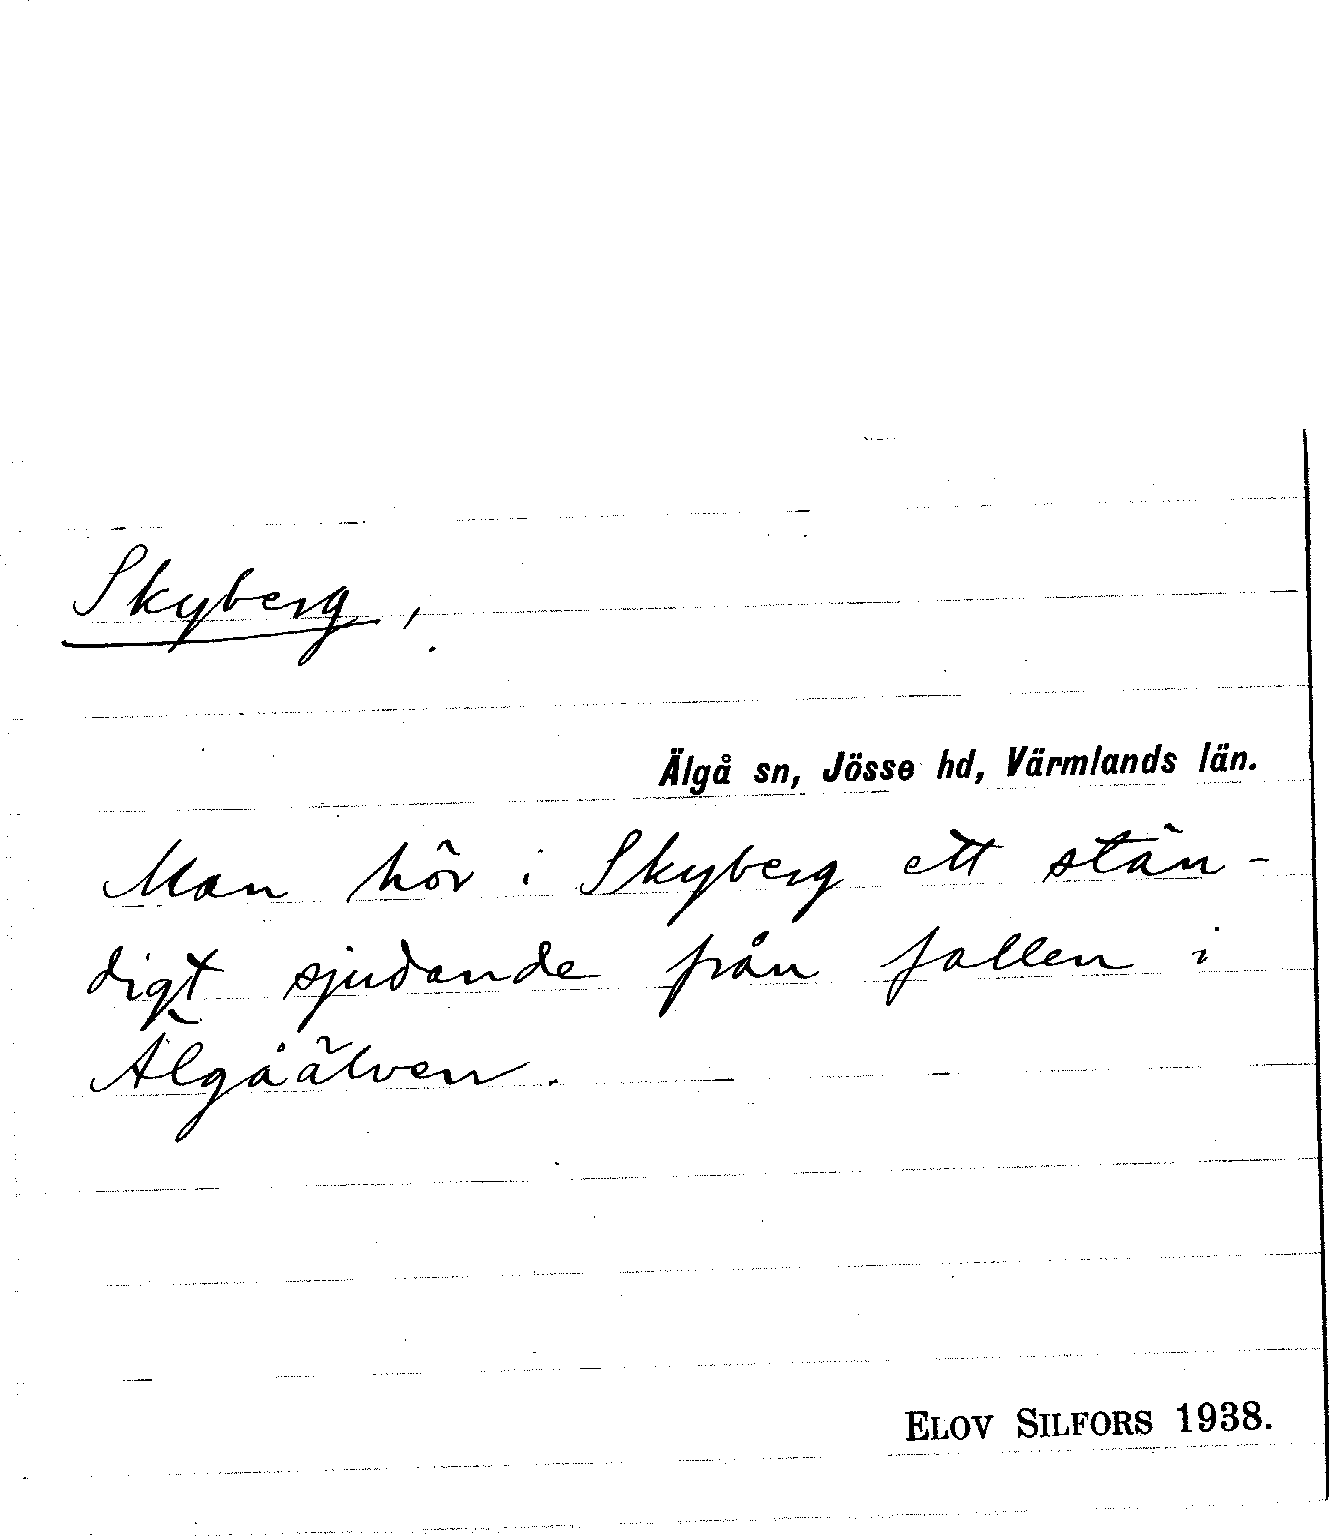 Skyberg,
Älgå sn, Jösse hd, Värmlands län.
Man hör i Skyberg ett stän-
digt sjudande från fallen i
Älgåälven.
ELOV SILFORS 1938.